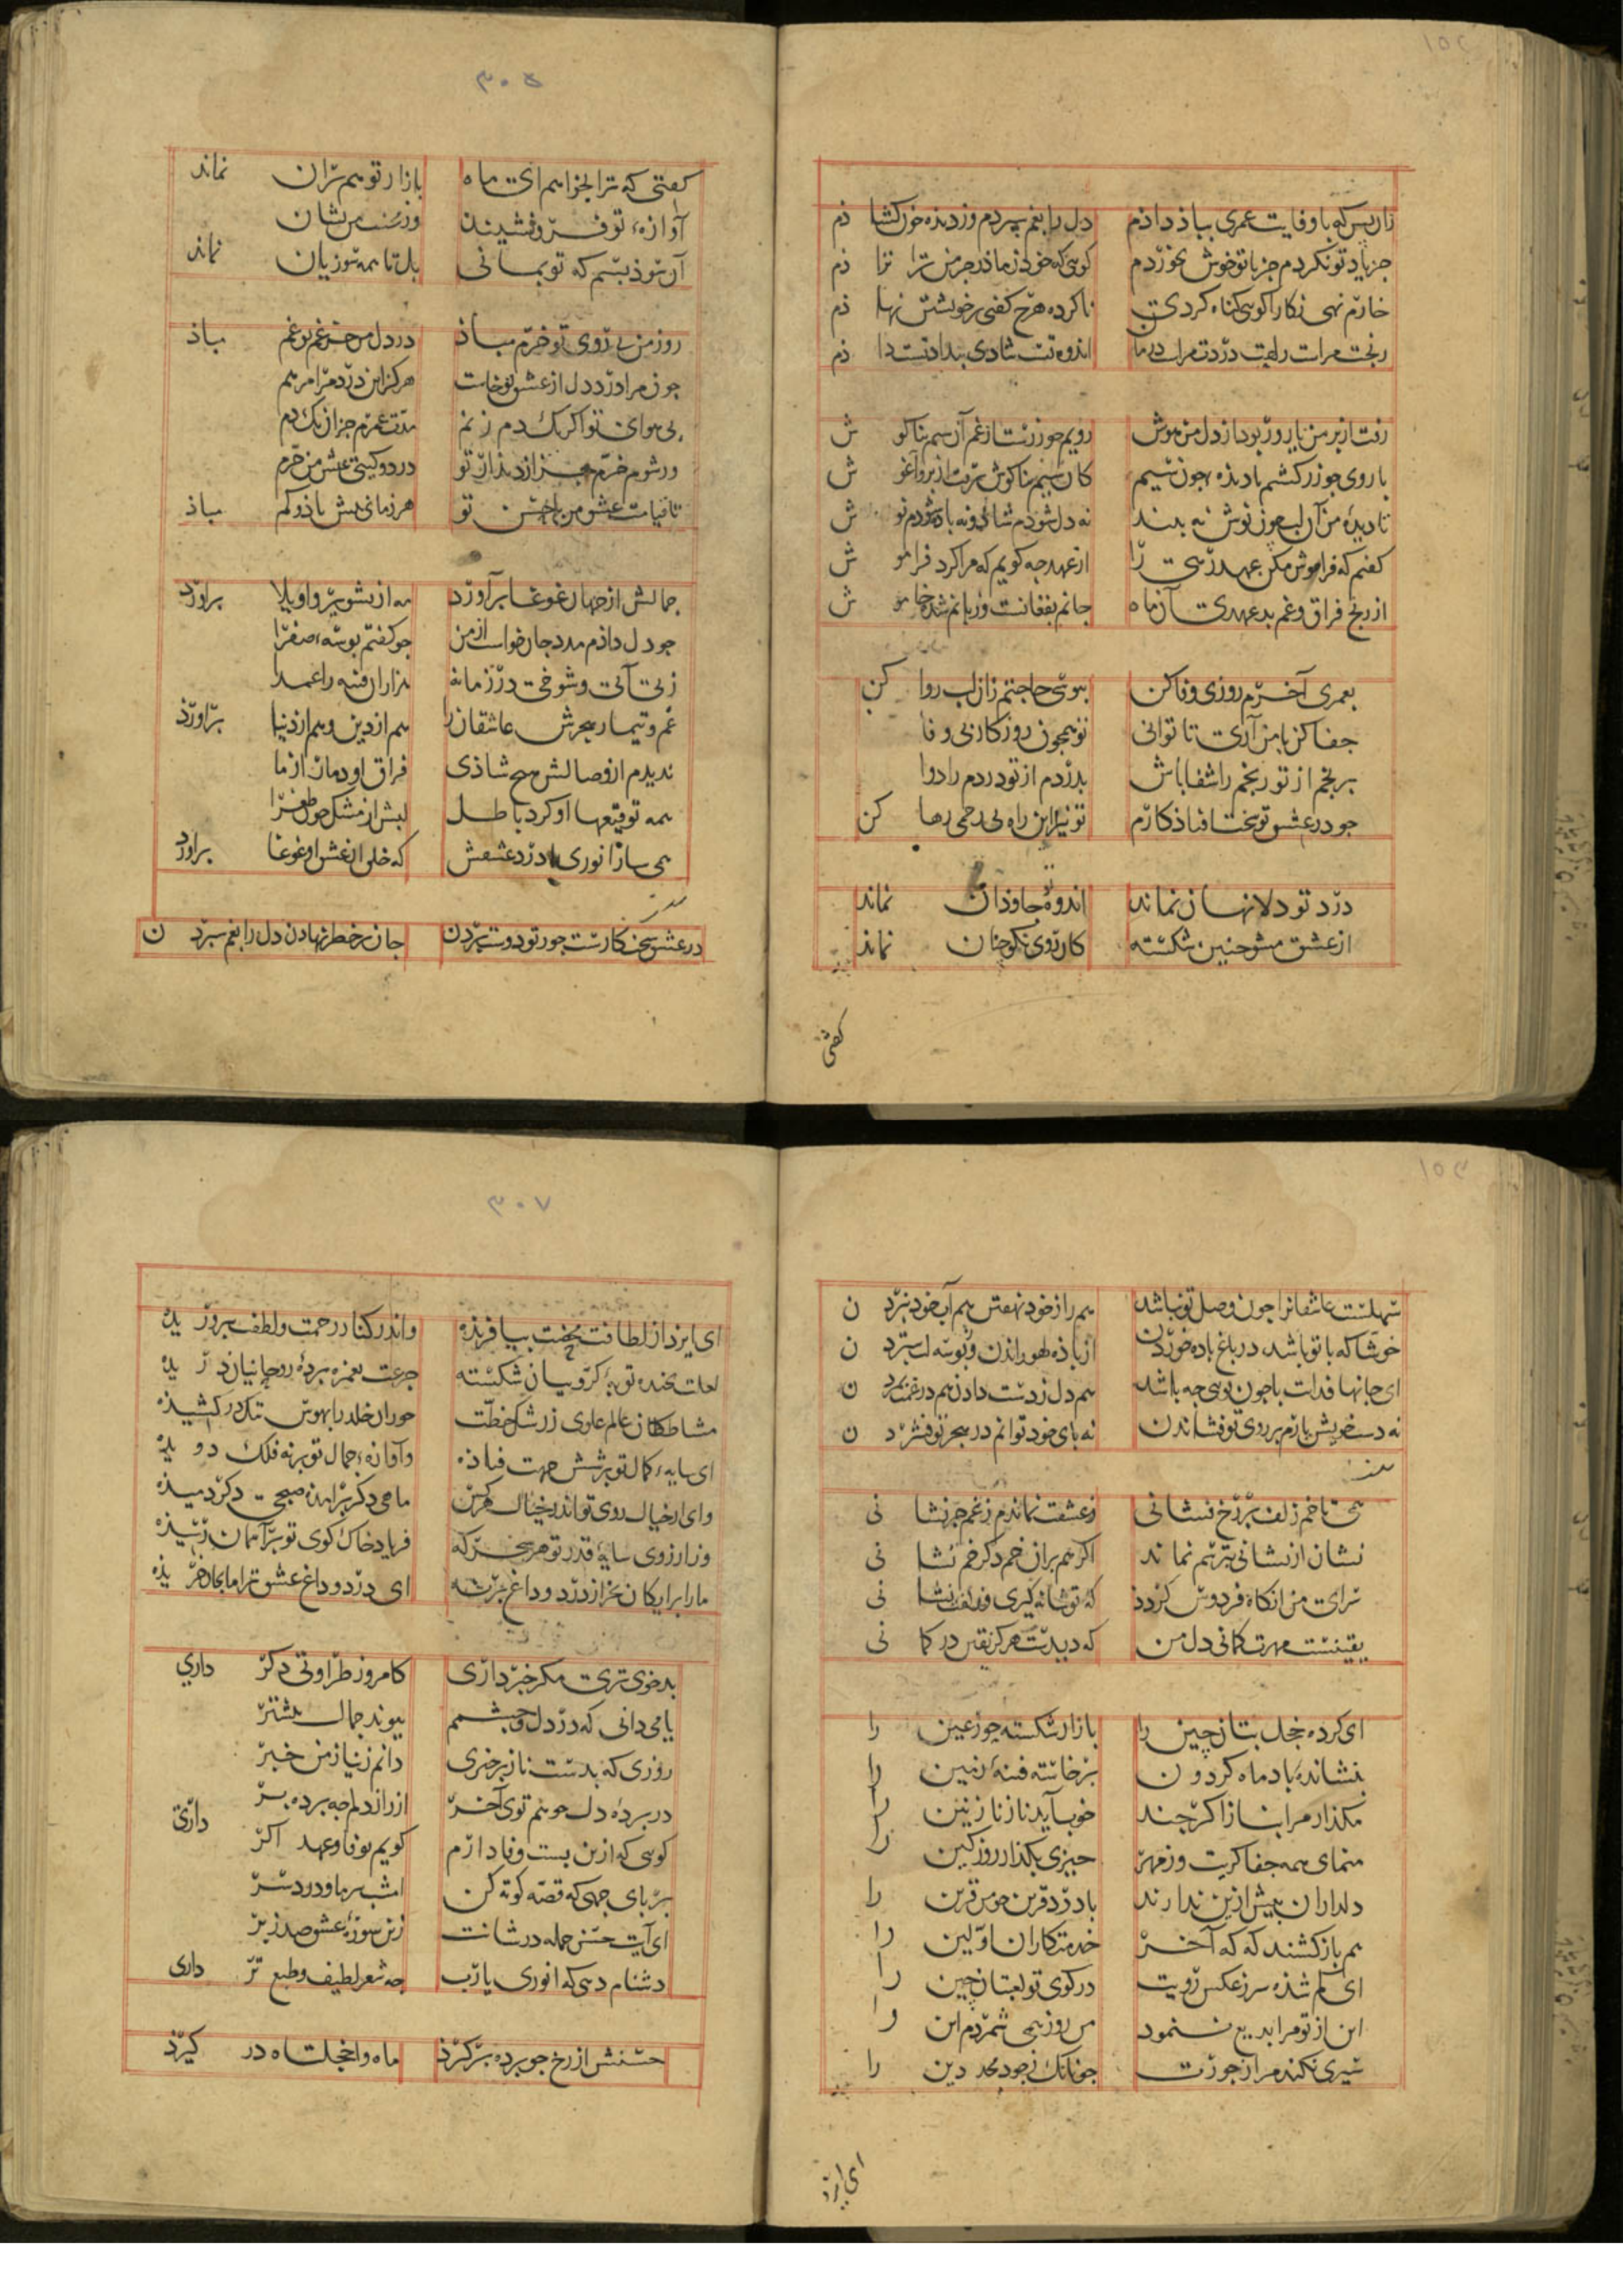 ۱۵۲
زان پس که با وفایت عمری بباذ داذم دل را بغم سپردم وز دیذه خون کشا ذم
جز یاد تو نکردم جز با تو خوش نخوردم کویی که خود نزاذ مادر جز من ترا
خارم نهی نکارا کویی کناه کردی ناکرده هرچ کفتی بر خویشتن نها ذم
رنجت مراست راحت دردت مراست درمان اندوه تست شادی بیداد تست دا ذم
رفت از بر من یار و ز بود از دل من هوش رویم جو زرست از غم آن سیم بناکو ش
با روی جو زر کشتم با دیذه جون سیم کان سیم بناکوش برفت از بر و آغو ش
تا دیده من آن لب چون نوش نه بیند نه دل شودم شاد و نه باده شودم نو ش
کفتم که فراموش مکن عهد رهی را از عهد جه کویم که مرا کرد فرا مو ش
از رنج فراق و غم بدعهدی آن ماه جانم بفغانست و زبانم شده خا مو ش
بعمری آخرم روزی وفا کن ببوسی حاجتم زان لب روا کن
جفا کن با من آری تا توانی تو همجون روزکار بی وفا
برنجم از تو رنجم را شفا باش بدردم از تو دردم را دوا
جو در عشق تو سخت افتاذ کارم تو نیز این راه بی رحمی رها کن
درد تو دلا نهان نماند اندوه تو جاوذان نماند
از عشق مشو جنین شکسته کار روی نکو جنان نماند
کفتی
۳۰۶
کفتی که ترا بخواهم ای ماه بازار تو هم بران نماند
آوازه تو فرو نشیند وز من نشان
آن سوذ بسم که تو بمانی بل تا همه سوز یان نماند
روز من بی روی تو خرم مباذ در دل من جز غم تو غم مباذ
جون مرا درد دل از عشق تو خاست هرکز این درد مرا مرهم
بی هوای تو اکر یک دم زنم مدت عمرم جز آن یک دم
ور شوم خرم بجز از دیذار تو در دو کیتی عیش من خرم
تا قیامت عشق من با حسن تو هر زمانی بیش باذ و کم مباذ
جمالش از جهان غوغا برآورد مه از تشویر واویلا براورد
جو دل داذم مدد جان خواست از من جو کفتم بوسه صفرا
زهی آیت و شوخی در زمانه هزاران فتنه را عمدا
غم و تیمار هجرش عاشقان را هم از دین و هم از دنیا براورد
ندیدم از وصالش هیچ شاذی فراق او دمار از ما
همه توقیعها او کرد باطل لبش از مشک جون طغرا
همی ساز انوری با درد عشقش که خلق از عشق او غوغا براورد
در عشق سخت کاریست جور تو دوست بردن جان بر خطر نهادن دل را بغم سپرد ن
۱۵۳
سهلست عاشقانرا جون وصل تو نباشد هم راز خود نهفتن هم آب خود ببرد ن
خوشا که با تو باشد در باغ باده خوردن از باده لهو راندن وز بوسه لب سترد ن
ای جانها فدات با جون تویی جه باشد هم دل ز دست دادن هم در غمت بمرد ن
نه دست خویش یارم بر روی تو فشاندن نه بای خود توانم در هجر تو فشرد ن
همی تا خم زلف بر رخ نشانی ز عشقت نماندم ز غم جز نشا نی
نشان از نشانی بترهم نماند اکر هم بران خم دکر خم نشا نی
سرای من انکاه فردوس کردد که تو شانه کیری و زلفت نشا نی
یقینست مهرت کمانی دل من که دیدست هرکز یقین در کما نی
ای کرده خجل بتان چین را بازار شکسته جون عین را
بنشانده باد ماه کردون برخاسته فتنه زمین را
مکذار مرا بناز اکر جند خوب آید ناز نازنین را
منمای همه جفا کریت وز مهر جیزی بکذار روز کین را
دلداران بیش ازین ندارند با درد قرین جو من قرین را
هم باز کشند که که آخر خدمتکاران اولین را
ای کم شذه سر ز عکس رویت در کوی تو لعبتان چین را
این از تو مرا بدیع ننمود من روز همی شمردم این را
سیری نکند مرا ز جورت جونانک ز جود مجد دین را
ای ایزد
۳۰۷
ای ایزد از لطافت محضت بیافریذه واندر کنار رحمت و لطف بپرور یذه
لعلت بخنده توبه کروبیان شکسته جزعت بغمزه پرده روحانیان در یذه
مشاطکان عالم علوی ز رشک خطت حوران خلد را بهوس نیل در کشیذه
ای سایه کمال تو بر شش جهت فتاذه وآوازه جمال تو بر نه فلک دو یذه
وای از خیال روی تو اندر خیال هرکس ماهی دکر براهن صبحی دکر دمیذه
وز آرزوی سایه قدر تو هر سحرکه فریاد خاک کوی تو بر آسمان رسیذه
ما را برایکان بخر از درد و داغ برته ای درد و داغ عشق ترا ما بجان خر یذه
بدخوی تری مکر خبر داری کامروز طراوتی دکر داری
یا می دانی که در دل و چشمم پیوند جمال بیشتر
روزی که بدست ناز برخیزی دانم ز نیاز من خبر
در برده دل جو هم توی آخر از راز دلم جه برده بر داری
کویی که ازین بست وفادارم کویم بوفا و عهد اکر
بر بای جهی که قصه کوته کن امشب سر ما و درد سر
ای آیت حسن جمله در شانت زین سوره عشق صد زبر
دشنام دهی که انوری یارب جه شعر لطیف و طبع تر داری
حسنش از رخ جو برده بر کرذ ماه وا خجلتاه در کیرذ